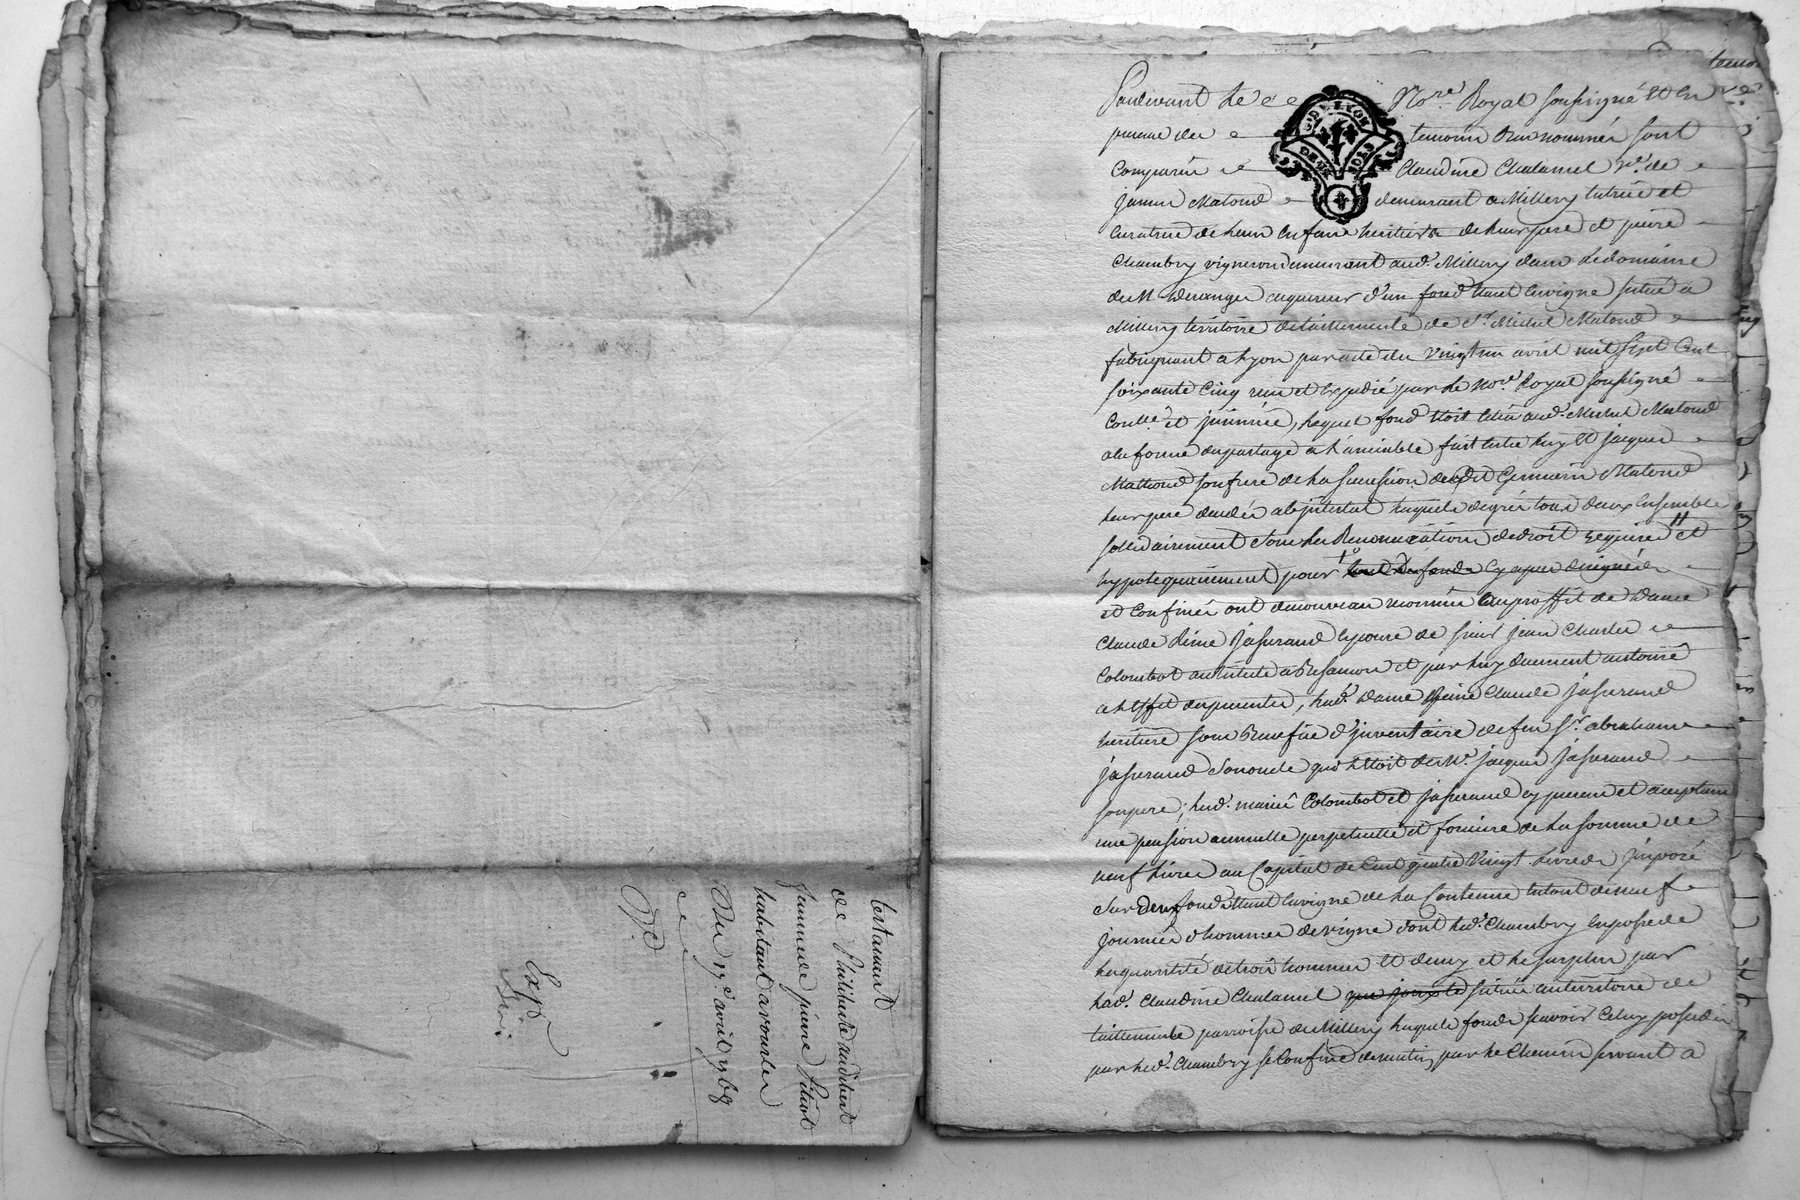 testament
de Philiberte audibert
femme de pierre Pitiot
habitant a vourles
Du 17.e avril 1769
Exp
temo
Pardevant Le No.re Royal soussigné Et En
presence des temoins bas nommés sont
Comparus Claudine Chalamel v.e de
Matoud demeurant a Millery tutrice et
curatrice de leurs Enfans heritiers de leur pere et pierre
Chambry vigneron demeurant aud. Millery dans le domaine
de M acquereur d'un fond étant En vigne situé a
Millery territoire de taillemente de S.r Michel Matoud
fabriquant a Lyon par acte du vingt un avril mil sept Cent
soixante Cinq reçu et Expedié par le No.re Royal soussigné
Con.llé et , lequel fond Etoit aud. Michel Matoud
a la forme du partage a l'amiable fait Entre luy Et jacques
Mathoud son frere de la succession de Germain Matoud
leur pere decedé abjntestat lesquels de gré tous deux Ensemble
sollidairement sous les Renonciations de droit requises et
hypotequairement pour les fonds cy apres designés
et Confinés ont de nouveau reconnu au proffit de Dame
Claude Reine Jasserand Epouse de sieur jean Charles
Colombot architecte a Besançon et par luy duement autorisé
a L'effet du present, lad. Dame Reine Claude Jasserand
heritiere sous Benefice d'jnventaire de feu S.r abraham
jasserand son oncle qui Etoit de M.r jacques Jasserand
son pere, lesd. mariés Colombot et Jasserand cy presens et acceptans
une pension annuelle perpetuelle et fonciere de la somme de
neuf Livres au Capital de Cent quatre vingt Livres jmposé
sur deux fonds Etant En vigne de la Contenue Entout de neuf
journées d'hommes de vigne dont led. Chambry En possede
la quantité de trois hommes Et demy et le surplus par
lad. Claudine Chalamel situés au territoire de
taillemente parroisse de Millery lesquels fonds savoir Celuy possedé
par led. Chambry se Confine de matin par le Chemin servant a